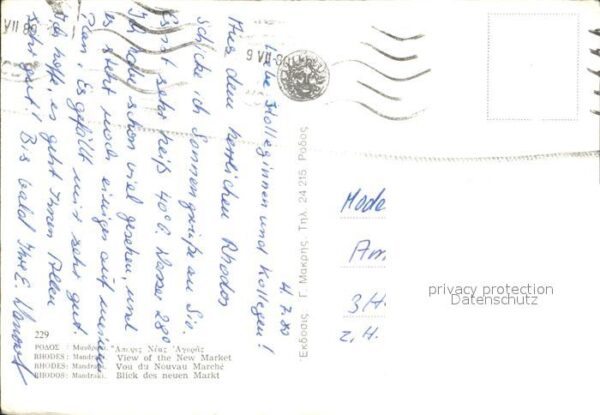 4.7.80
Liebe Kolleginnen und Kollegen!
Aus dem herrlichen Rhodos
schicke ich Sonnengrüße an Sie.
Es ist sehr heiß 40°C. Wasser 28°
Ich habe schon viel gesehen, und
es steht noch einiges auf meinem
Plan. Es gefällt mir sehr gut.
Ich hoffe, es geht Ihnen Allen
sehr gut! Bis bald Ihre E.
Mode
Am
3 H
z. H.
privacy protection
Datenschutz
Ἔκδοσις Γ. Μακρῆς Τηλ. 24 215 Ρόδος
229
ΡΟΔΟΣ : Μανδράκι. Ἄποψις Νέας Ἀγορᾶς
RHODES: Mandraki. View of the New Market
RHODES: Mandraki. Vou du Nouvau Marché
RHODOS: Mandraki. Blick des neuen Markt